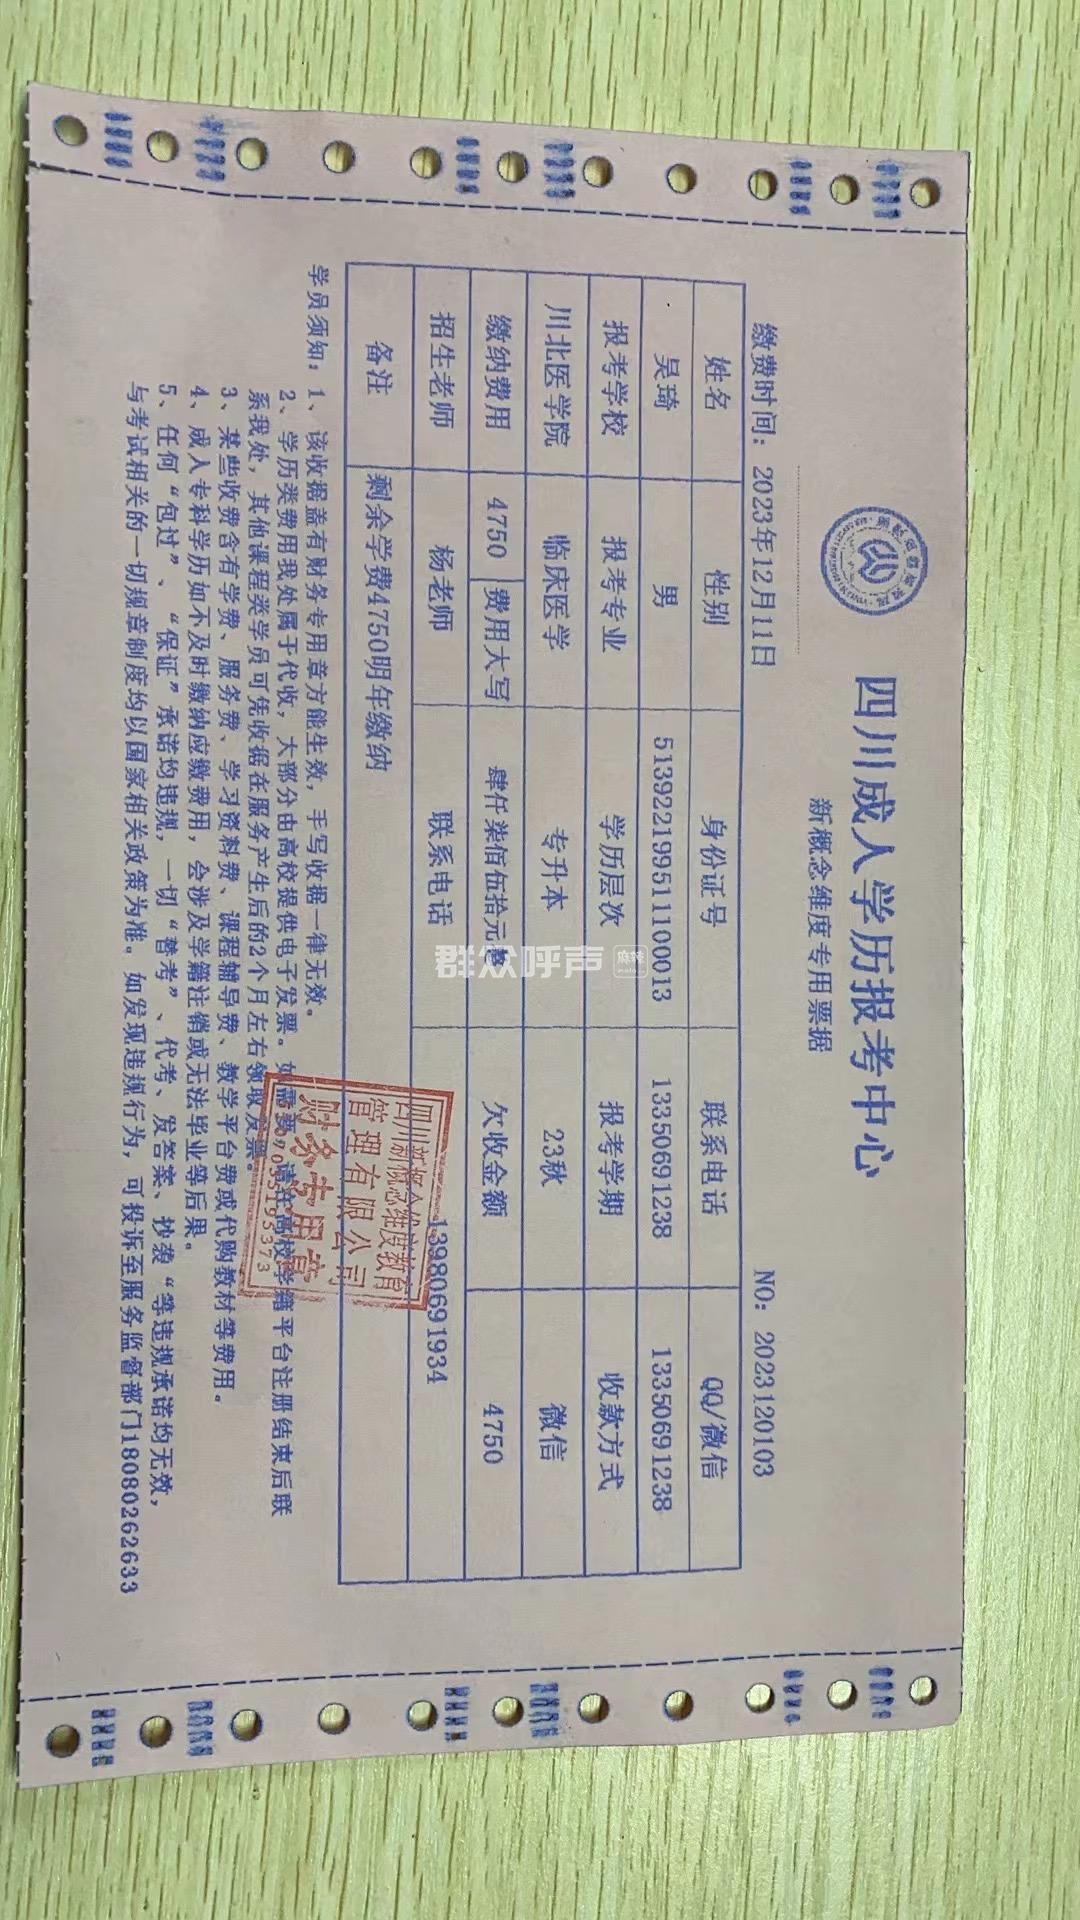 四川成人学历报考中心
新概念维度专用票据
缴费时间：2023年12月11日 NO：2023120103
姓名 性别 身份证号 联系电话 QQ/微信
吴琦 男 513922199511100013 13350691238 13350691238
报考学校 报考专业 学历层次 报考学期 收款方式
川北医学院 临床医学 专升本 23秋 微信
缴纳费用 4750 费用大写 肆仟柒佰伍拾元整 欠收金额 4750
招生老师 杨老师 联系电话 13980691934
备注 剩余学费4750明年缴纳
学员须知：1、该收据盖有财务专用章方能生效，手写收据一律无效。
2、学历类费用我处属于代收，大部分由高校提供电子发票。如需要，请在高校学籍平台注册结束后联
系我处，其他课程类学员可凭收据在服务产生后的2个月左右领取发票。
3、某些收费含有学费、服务费、学习资料费、课程辅导费、教学平台费或代购教材等费用。
4、成人专科学历如不及时缴纳应缴费用，会涉及学籍注销或无法毕业等后果。
5、任何“包过”、“保证”承诺均违规，一切“替考”、代考、发答案、抄袭“等违规承诺均无效，
与考试相关的一切规章制度均以国家相关政策为准。如发现违规行为，可投诉至服务监督部门18080262633
四川新概念维度教育
管理有限公司
财务专用章
群众呼声
麻辣